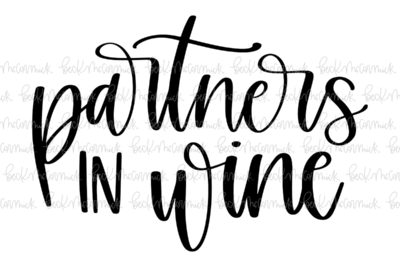 partners
IN wine